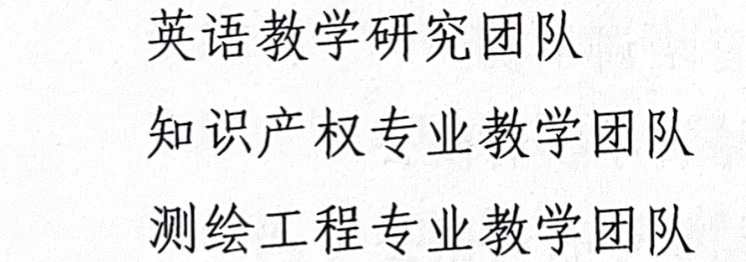 英语教学研究团队
知识产权专业教学团队
测绘工程专业教学团队